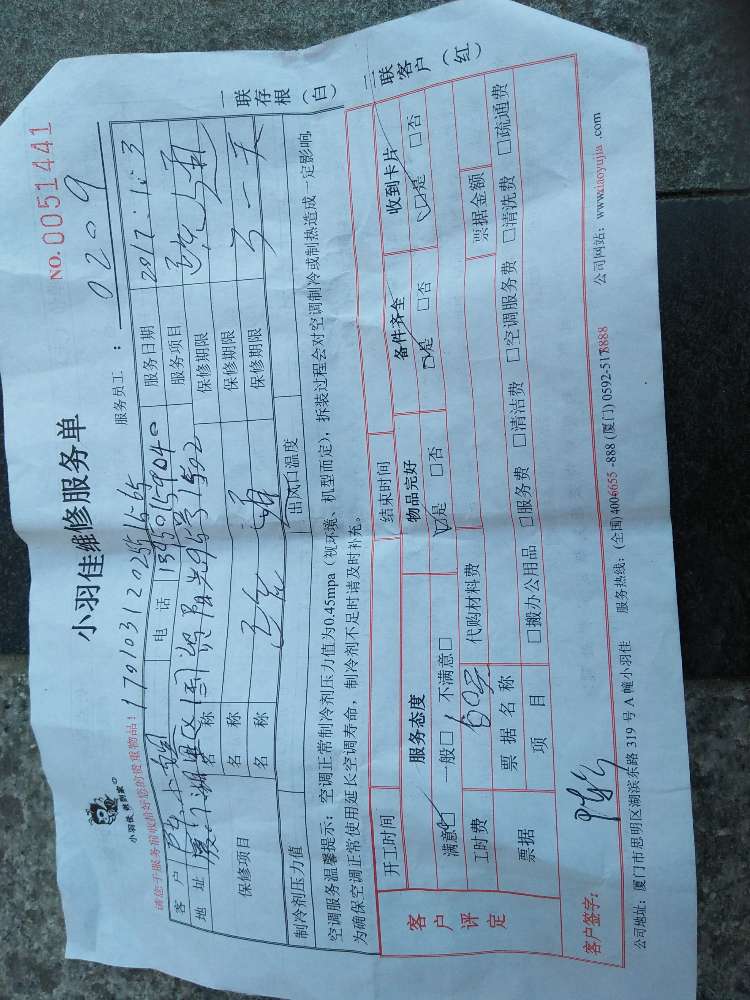 小羽佳维修服务单
NO.0051441
小羽佳 帮到家
请您于服务前收拾好您的贵重物品!
服务员工: 0209
客户
电话
服务日期 2017.10.3
地址
服务项目
保修项目
名称
保修期限
名称
保修期限
名称
保修期限
制冷剂压力值
出风口温度
空调服务温馨提示:空调正常制冷剂压力值为0.45mpa(视环境、机型而定),拆装过程会对空调制冷或制热造成 定影响
为确保空调正常使用延长空调寿命,制冷剂不足时请及时补充。
一联存根(白)
二联客户(红)
客户评定
开工时间
结束时间
服务态度
物品完好
备件齐全
收到卡片
满意□ 一般□ 不满意□
□是 □否
□是 □否
□是 □否
工时费 60元
代购材料费
票据金额
票据
票据名称
项目
□搬办公用品 □服务费 □清洁费 □空调服务费 □清洗费 □疏通费
客户签字:
公司地址:厦门市思明区湖滨东路 319 号 A 幢小羽佳 服务热线:(全国)4006655-888 (厦门) 0592-5178888 公司网站:www.xiaoyujia .com